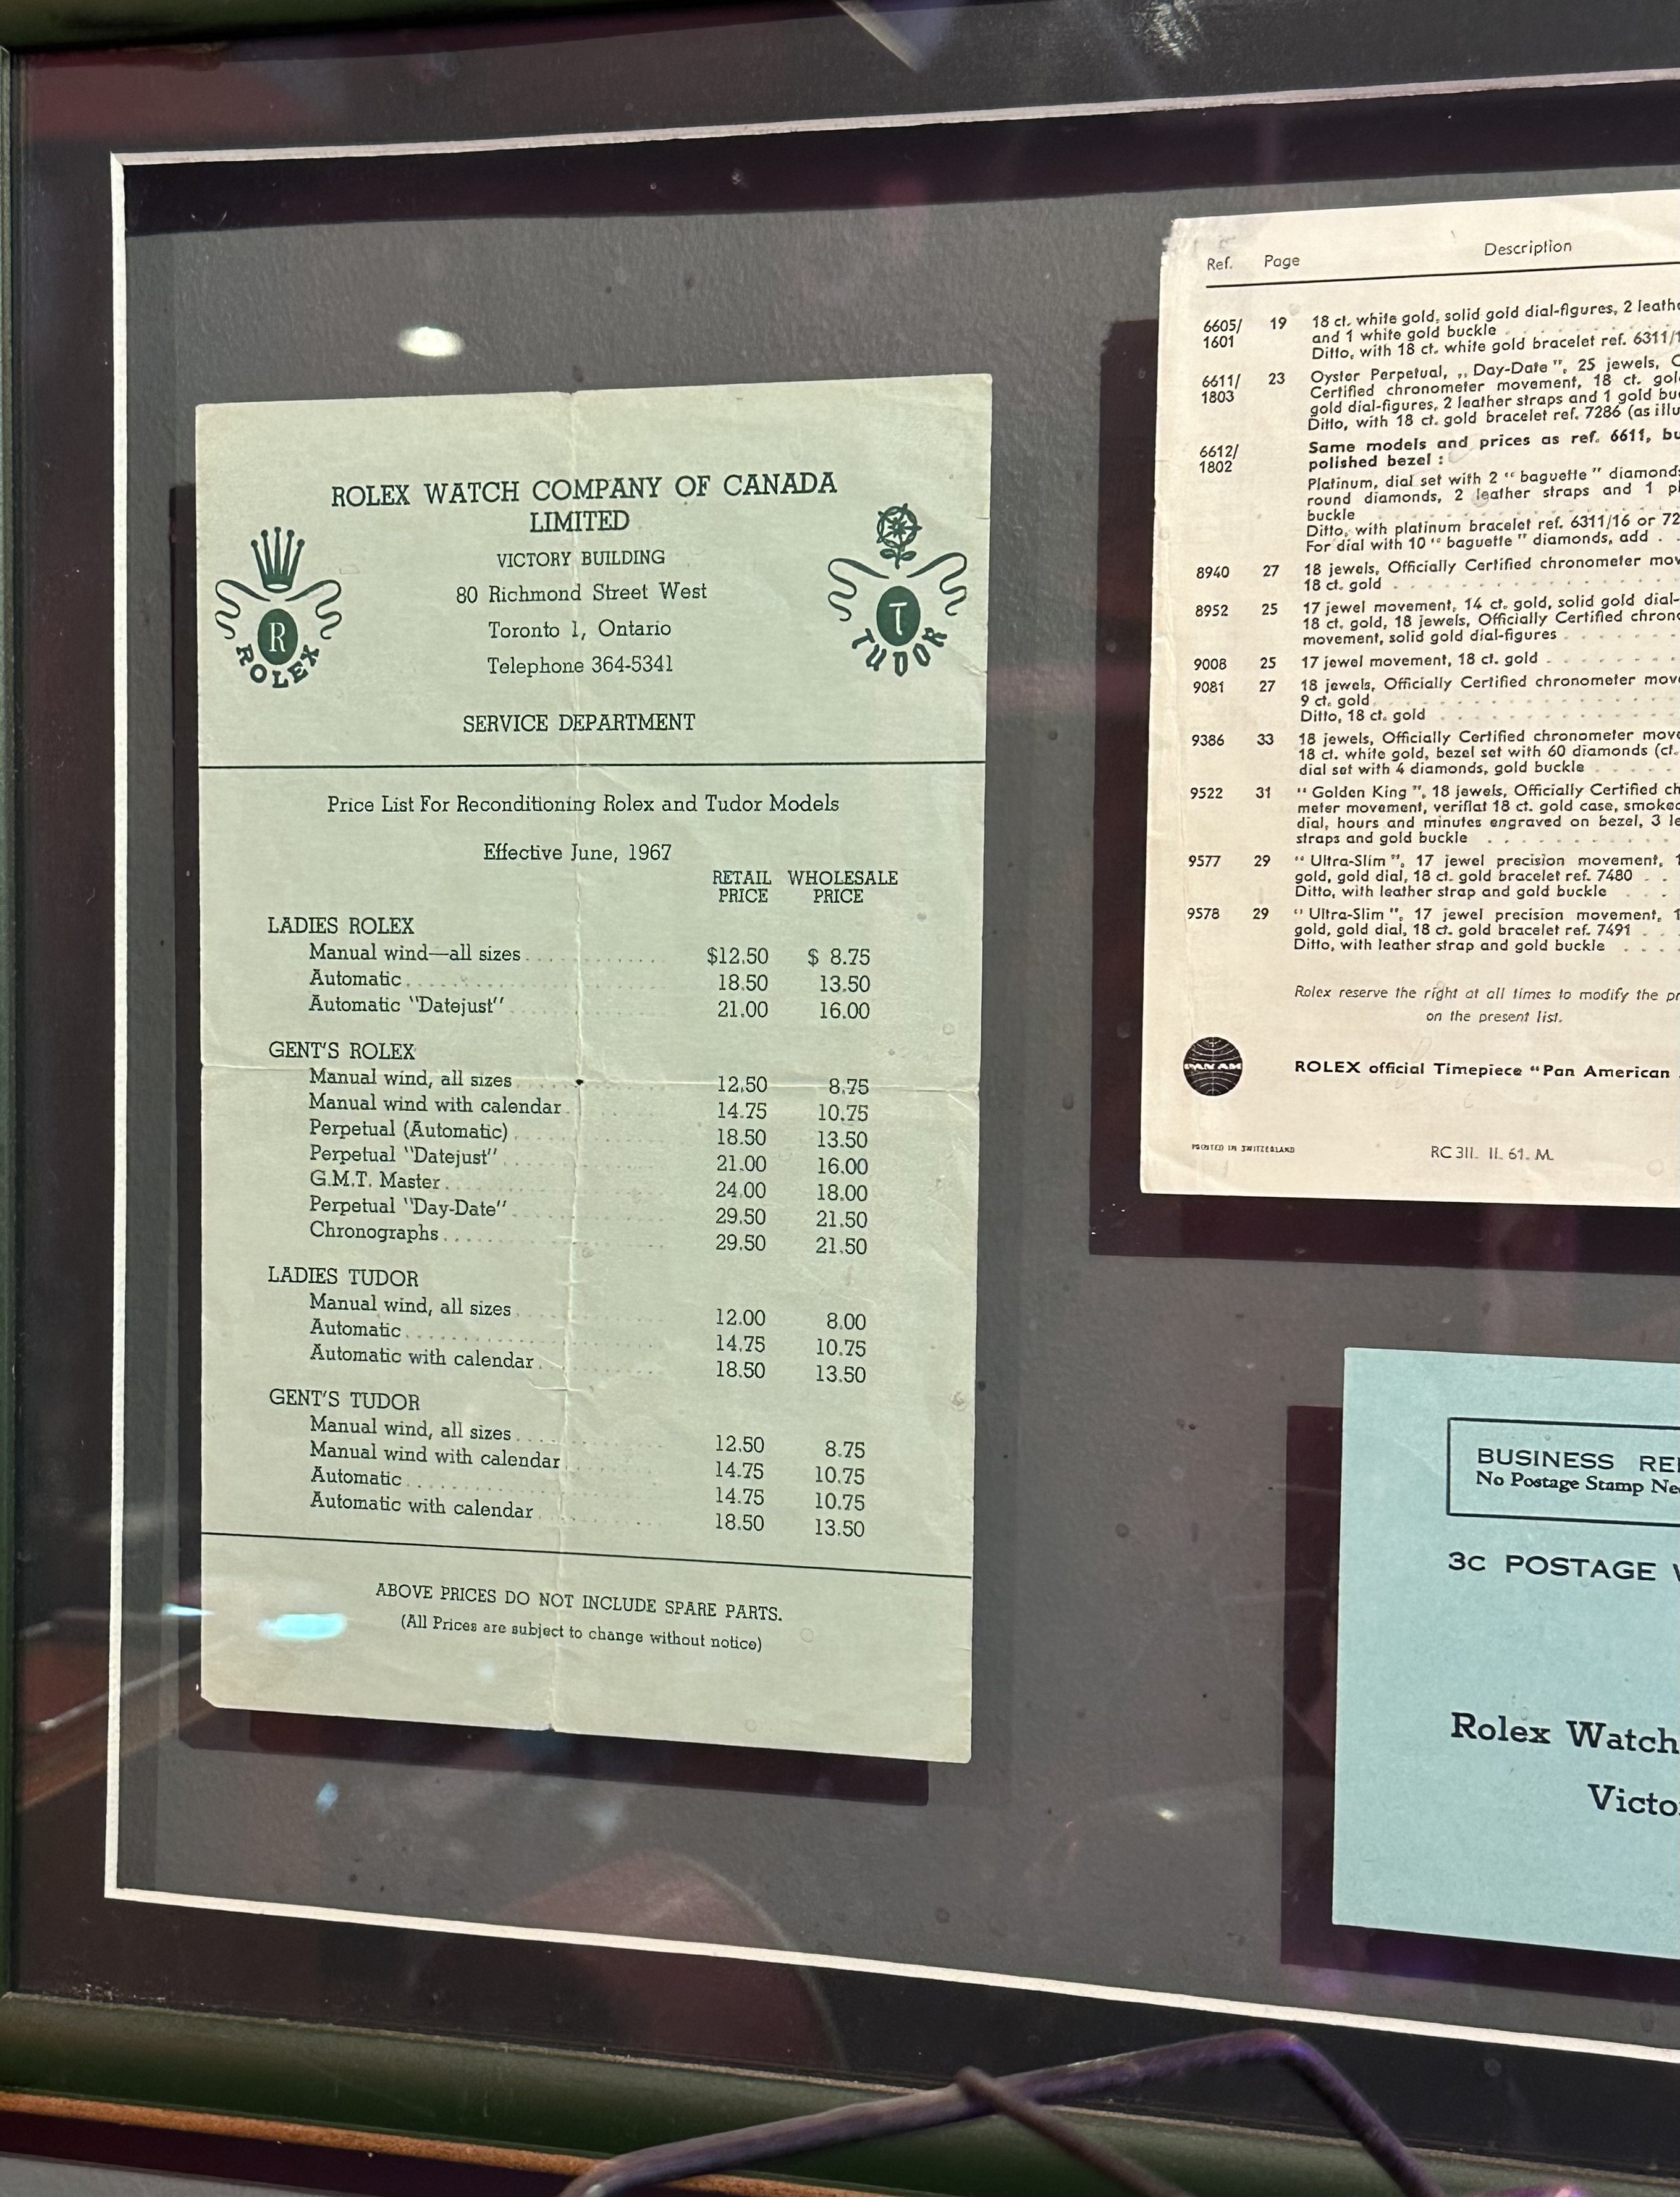 ROLEX WATCH COMPANY OF CANADA
LIMITED
VICTORY BUILDING
80 Richmond Street West
Toronto 1, Ontario
Telephone 364-5341
R
ROLEX
T
TUDOR
SERVICE DEPARTMENT
Price List For Reconditioning Rolex and Tudor Models
Effective June, 1967
RETAIL PRICE WHOLESALE PRICE
LADIES ROLEX
Manual wind—all sizes $12.50 $ 8.75
Automatic 18.50 13.50
Automatic "Datejust" 21.00 16.00
GENT'S ROLEX
Manual wind, all sizes 12.50 8.75
Manual wind with calendar 14.75 10.75
Perpetual (Automatic) 18.50 13.50
Perpetual "Datejust" 21.00 16.00
G.M.T. Master 24.00 18.00
Perpetual "Day-Date" 29.50 21.50
Chronographs 29.50 21.50
LADIES TUDOR
Manual wind, all sizes 12.00 8.00
Automatic 14.75 10.75
Automatic with calendar 18.50 13.50
GENT'S TUDOR
Manual wind, all sizes 12.50 8.75
Manual wind with calendar 14.75 10.75
Automatic 14.75 10.75
Automatic with calendar 18.50 13.50
ABOVE PRICES DO NOT INCLUDE SPARE PARTS.
(All Prices are subject to change without notice)
Ref. Page Description
6605/ 19 18 ct. white gold, solid gold dial-figures, 2
1601 and 1 white gold buckle
Ditto, with 18 ct. white gold bracelet ref.
6611/ 23 Oyster Perpetual, „ Day-Date ", 25 jewels,
1803 Certified chronometer movement, 18 ct.
gold dial-figures, 2 leather straps and 1 gold
Ditto, with 18 ct. gold bracelet ref. 7286 (as
6612/ Same models and prices as ref. 6611,
1802 polished bezel :
Platinum, dial set with 2 " baguette "
round diamonds, 2 leather straps and 1
buckle
Ditto, with platinum bracelet ref. 6311/16 or
For dial with 10 " baguette " diamonds, add
8940 27 18 jewels, Officially Certified chronometer
18 ct. gold
8952 25 17 jewel movement, 14 ct. gold, solid gold
18 ct. gold, 18 jewels, Officially Certified
movement, solid gold dial-figures
9008 25 17 jewel movement, 18 ct. gold
9081 27 18 jewels, Officially Certified chronometer
9 ct. gold
Ditto, 18 ct. gold
9386 33 18 jewels, Officially Certified chronometer
18 ct. white gold, bezel set with 60 diamonds (ct.
dial set with 4 diamonds, gold buckle
9522 31 " Golden King ", 18 jewels, Officially Certified
meter movement, veriflat 18 ct. gold case,
dial, hours and minutes engraved on bezel, 3
straps and gold buckle
9577 29 " Ultra-Slim ", 17 jewel precision movement,
gold, gold dial, 18 ct. gold bracelet ref. 7480
Ditto, with leather strap and gold buckle
9578 29 " Ultra-Slim ", 17 jewel precision movement,
gold, gold dial, 18 ct. gold bracelet ref. 7491
Ditto, with leather strap and gold buckle
Rolex reserve the right at all times to modify the
on the present list.
PAN AM
ROLEX official Timepiece "Pan American
PRINTED IN SWITZERLAND RC 311. 11. 61. M.
BUSINESS
No Postage Stamp
3c POSTAGE
Rolex Watch